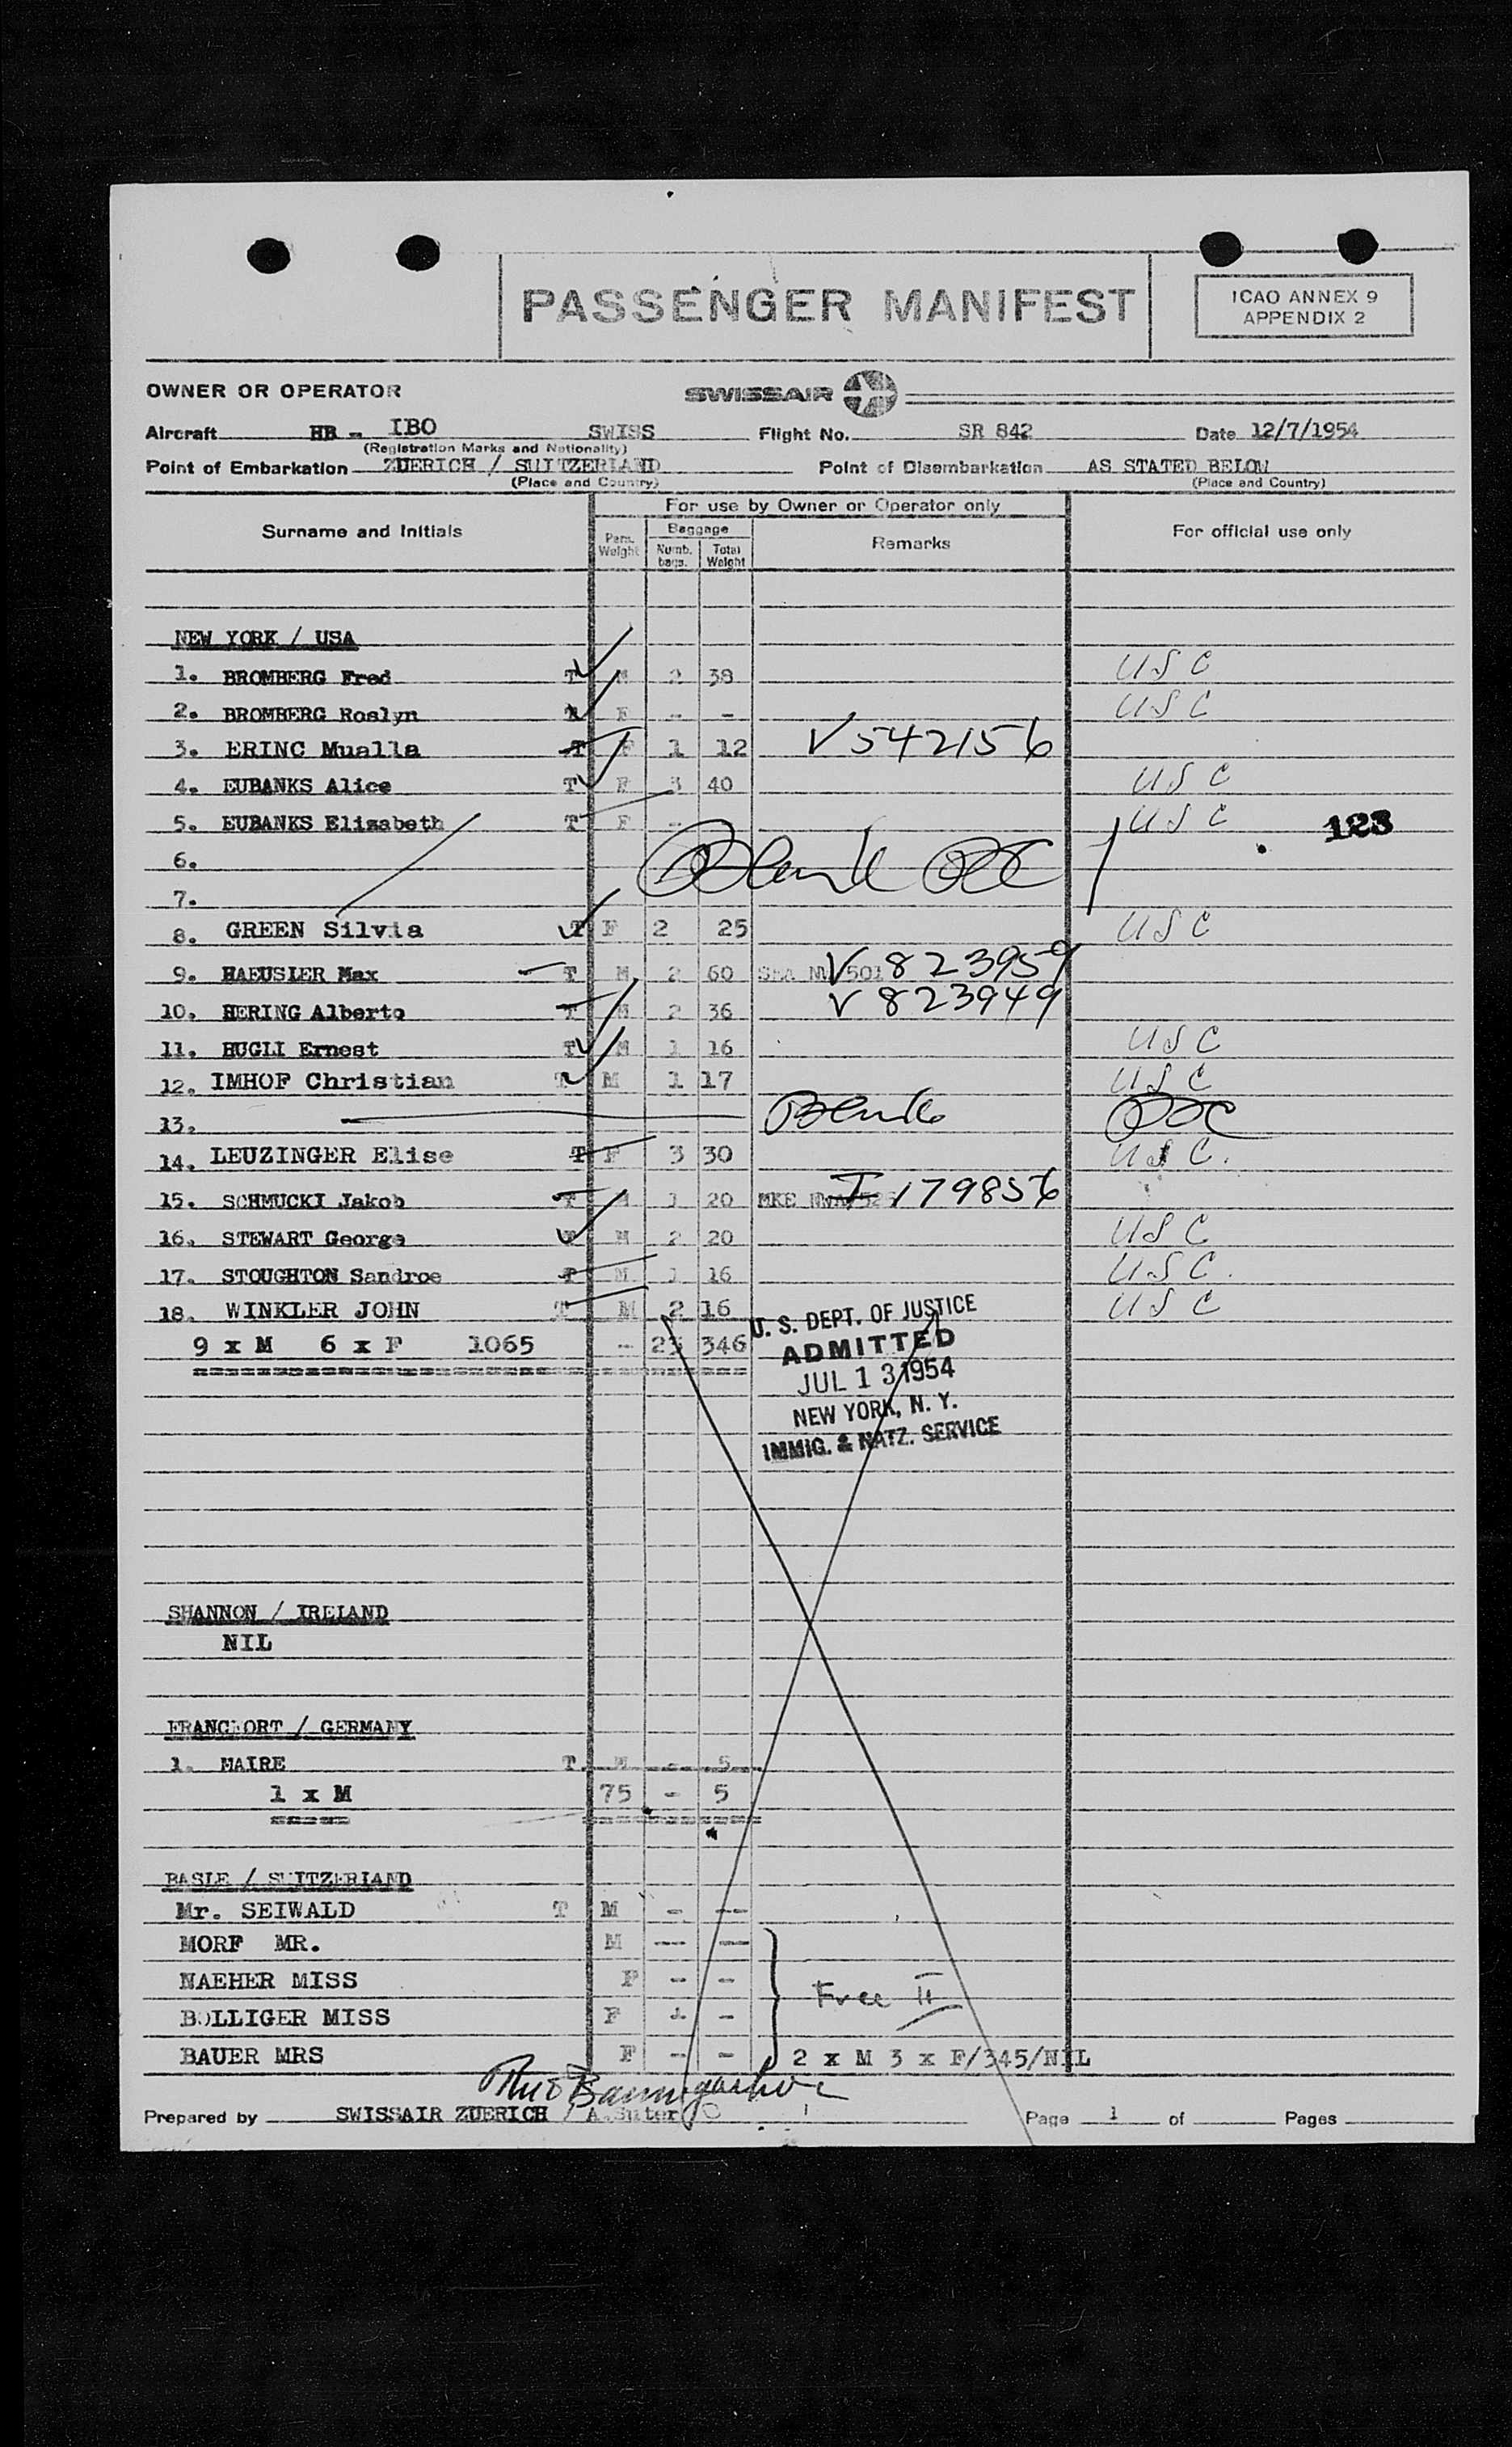 PASSENGER MANIFEST
ICAO ANNEX 9
APPENDIX 2
OWNER OR OPERATOR SWISSAIR
Aircraft HB - IBO SWISS Flight No. SR 842 Date 12/7/1954
(Registration Marks and Nationality)
Point of Embarkation ZUERICH / SWITZERLAND Point of Disembarkation AS STATED BELOW
(Place and Country) (Place and Country)
For use by Owner or Operator only
Surname and Initials Pers. Weight Baggage Numb. bags. Total Weight Remarks For official use only
NEW YORK / USA
1. BROMBERG Fred T M 2 38 USC
2. BROMBERG Roslyn F - - USC
3. ERINC Mualla T F 1 12 V542156
4. EUBANKS Alice T F 3 40 USC
5. EUBANKS Elizabeth T F - USC 123
6. Blank
7.
8. GREEN Silvia T F 2 25 USC
9. HAEUSLER Max T M 2 60 V 823959
10. HERING Alberto T M 2 36 V 823949
11. HUGLI Ernest T M 1 16 USC
12. IMHOF Christian T M 1 17 USC
13. Blank
14. LEUZINGER Elise T F 3 30 USC.
15. SCHMUCKI Jakob T M 1 20 MKE I 179856
16. STEWART George M 2 20 USC
17. STOUGHTON Sandroe T M 1 16 USC.
18. WINKLER JOHN T M 2 16 USC
9 x M 6 x F 1065 - 23 346
U. S. DEPT. OF JUSTICE
ADMITTED
JUL 13 1954
NEW YORK, N. Y.
IMMIG. & NATZ. SERVICE
SHANNON / IRELAND
NIL
FRANCFORT / GERMANY
1. MAIRE T M - 5
1 x M 75 - 5
BASLE / SWITZERLAND
Mr. SEIWALD T M - --
MORF MR. M -- --
NAEHER MISS F - -
BOLLIGER MISS F - -
Free II
BAUER MRS F - - 2 x M 3 x F/345/NIL
Prepared by SWISSAIR ZUERICH / A.Suter Page 1 of Pages